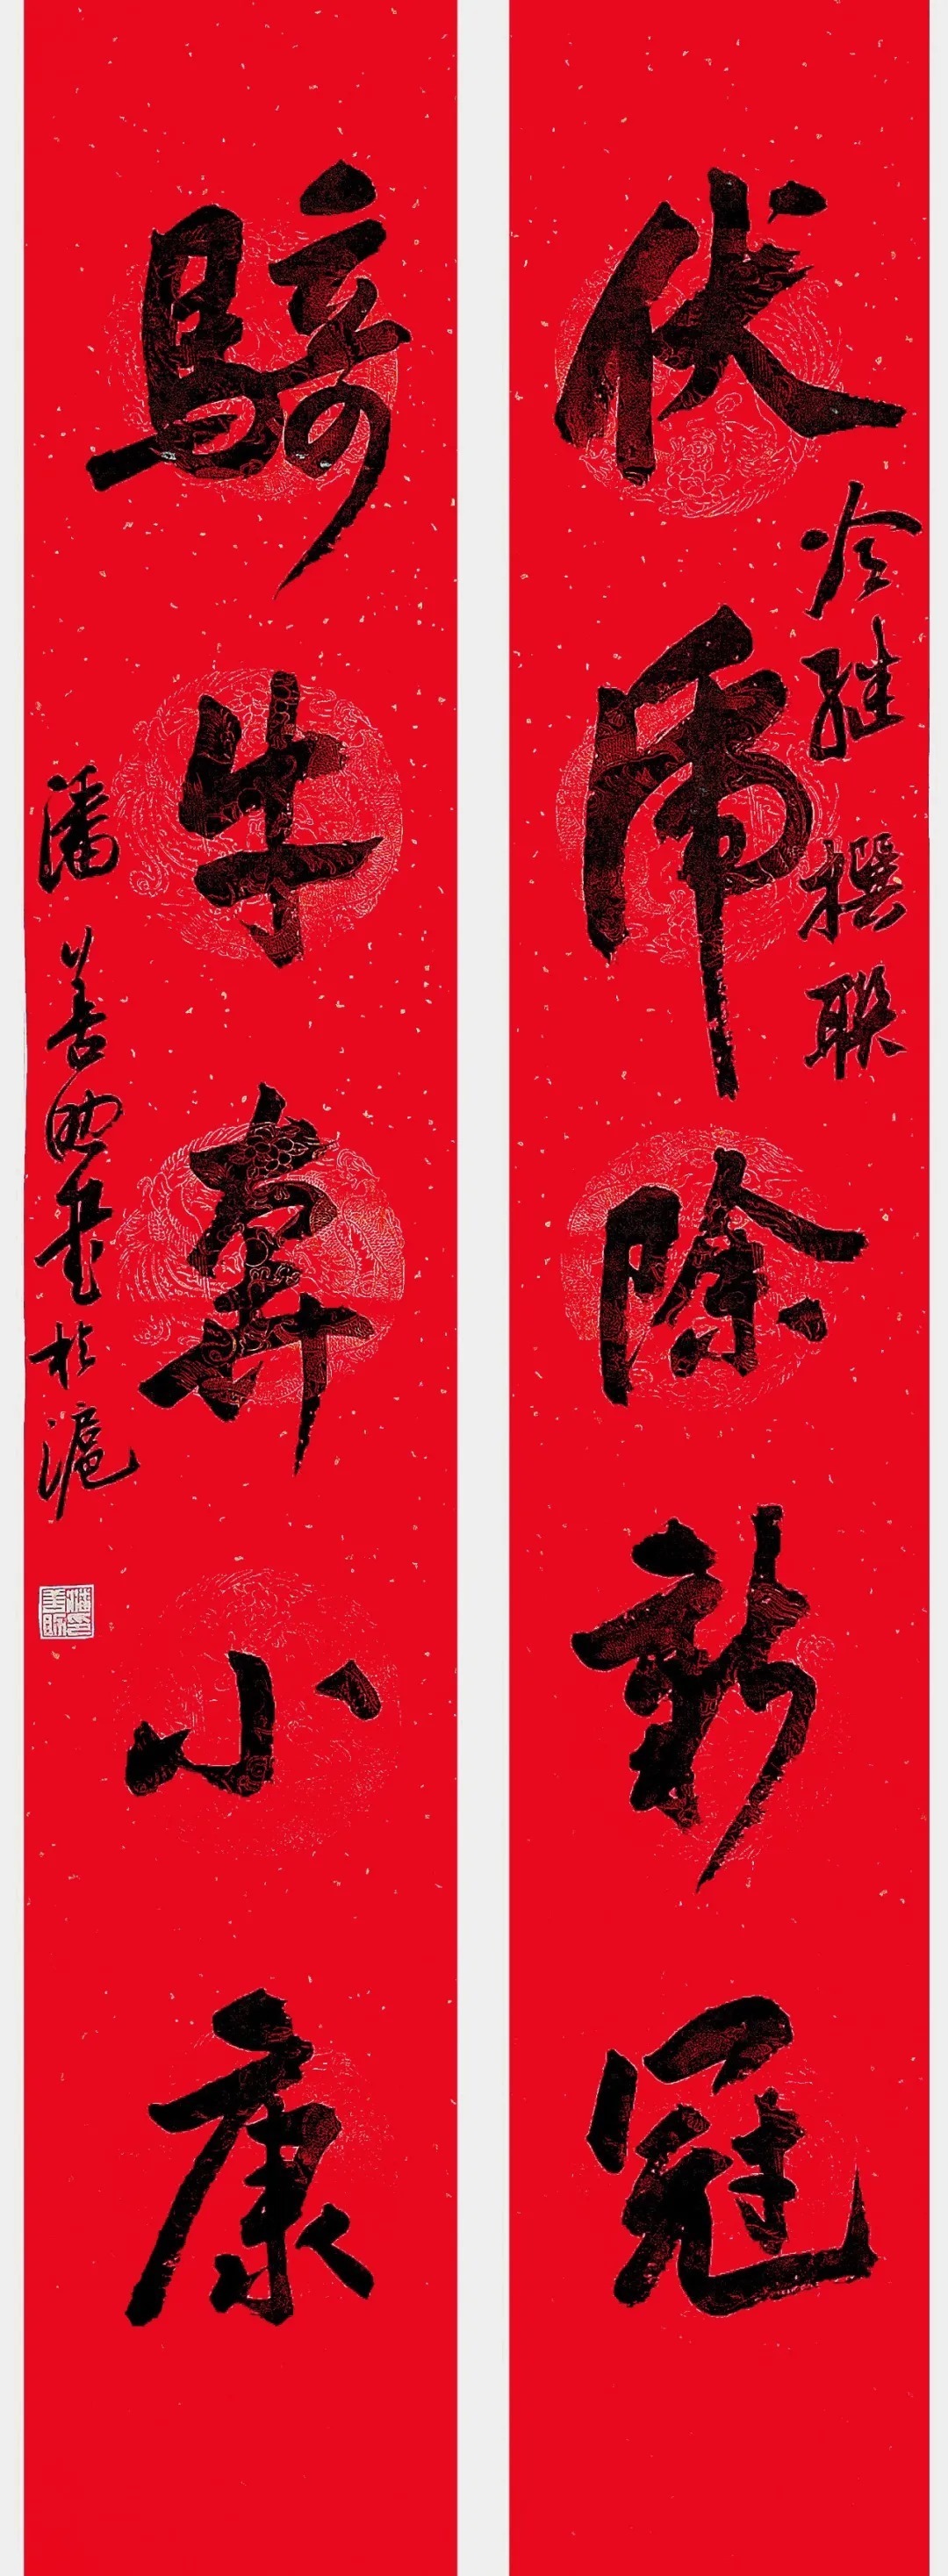 伏虎除新冠
冷 撰联
騎牛奔小康
潘善助書於滬
潘善助印